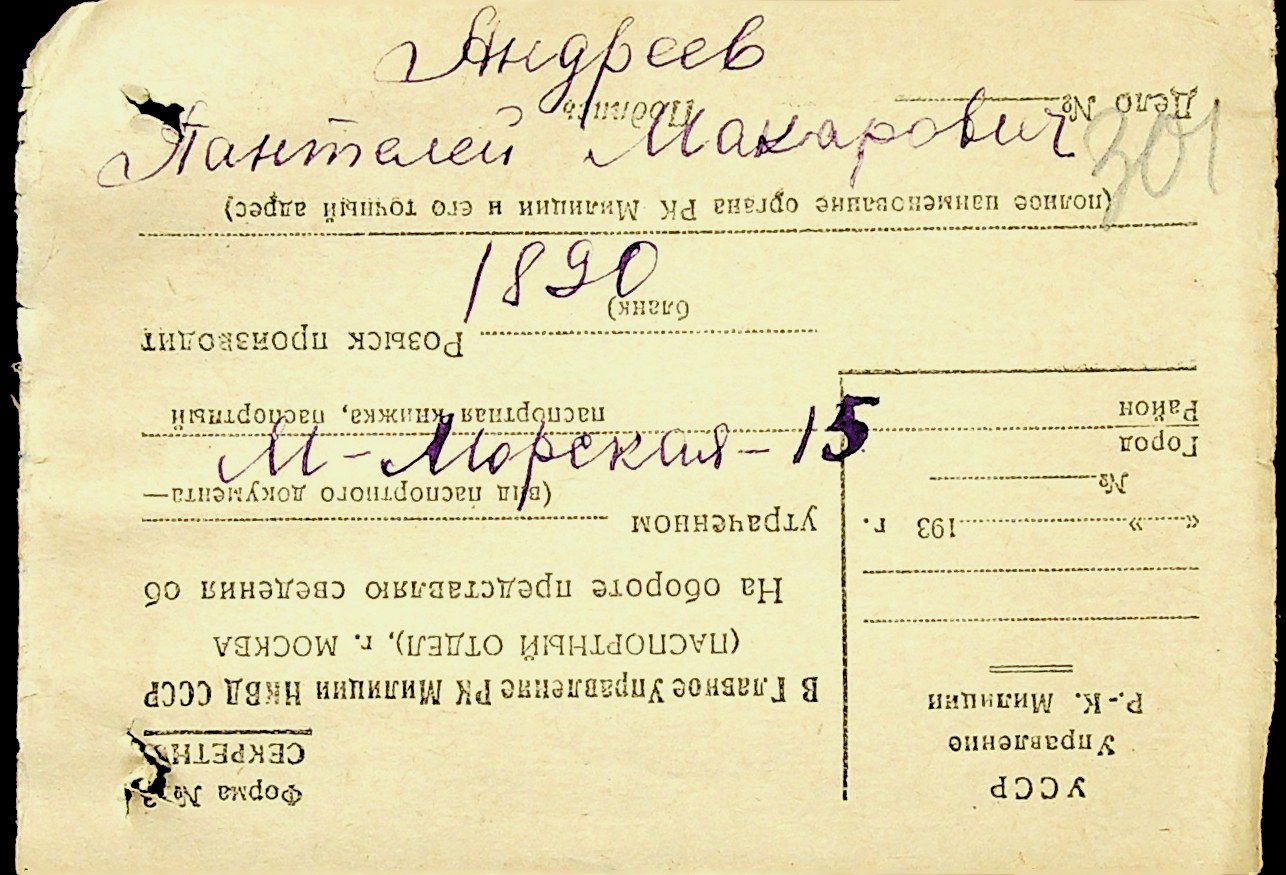 Андреев
Пантелей Макарович
301
1890
М-Морская-15
УССР
Управление
Р.-К. Милиции
« » 193 г.
№
Город
Район
Форма №
СЕКРЕТНО
В Главное Управление РК Милиции НКВД СССР
(ПАСПОРТНЫЙ ОТДЕЛ), г. МОСКВА
На обороте представляю сведения об
утраченном
(вид паспортного документа—
паспортная книжка, паспортный
бланк)
Розыск производит
(полное наименование органа РК Милиции и его точный адрес)
Дело № Подпись